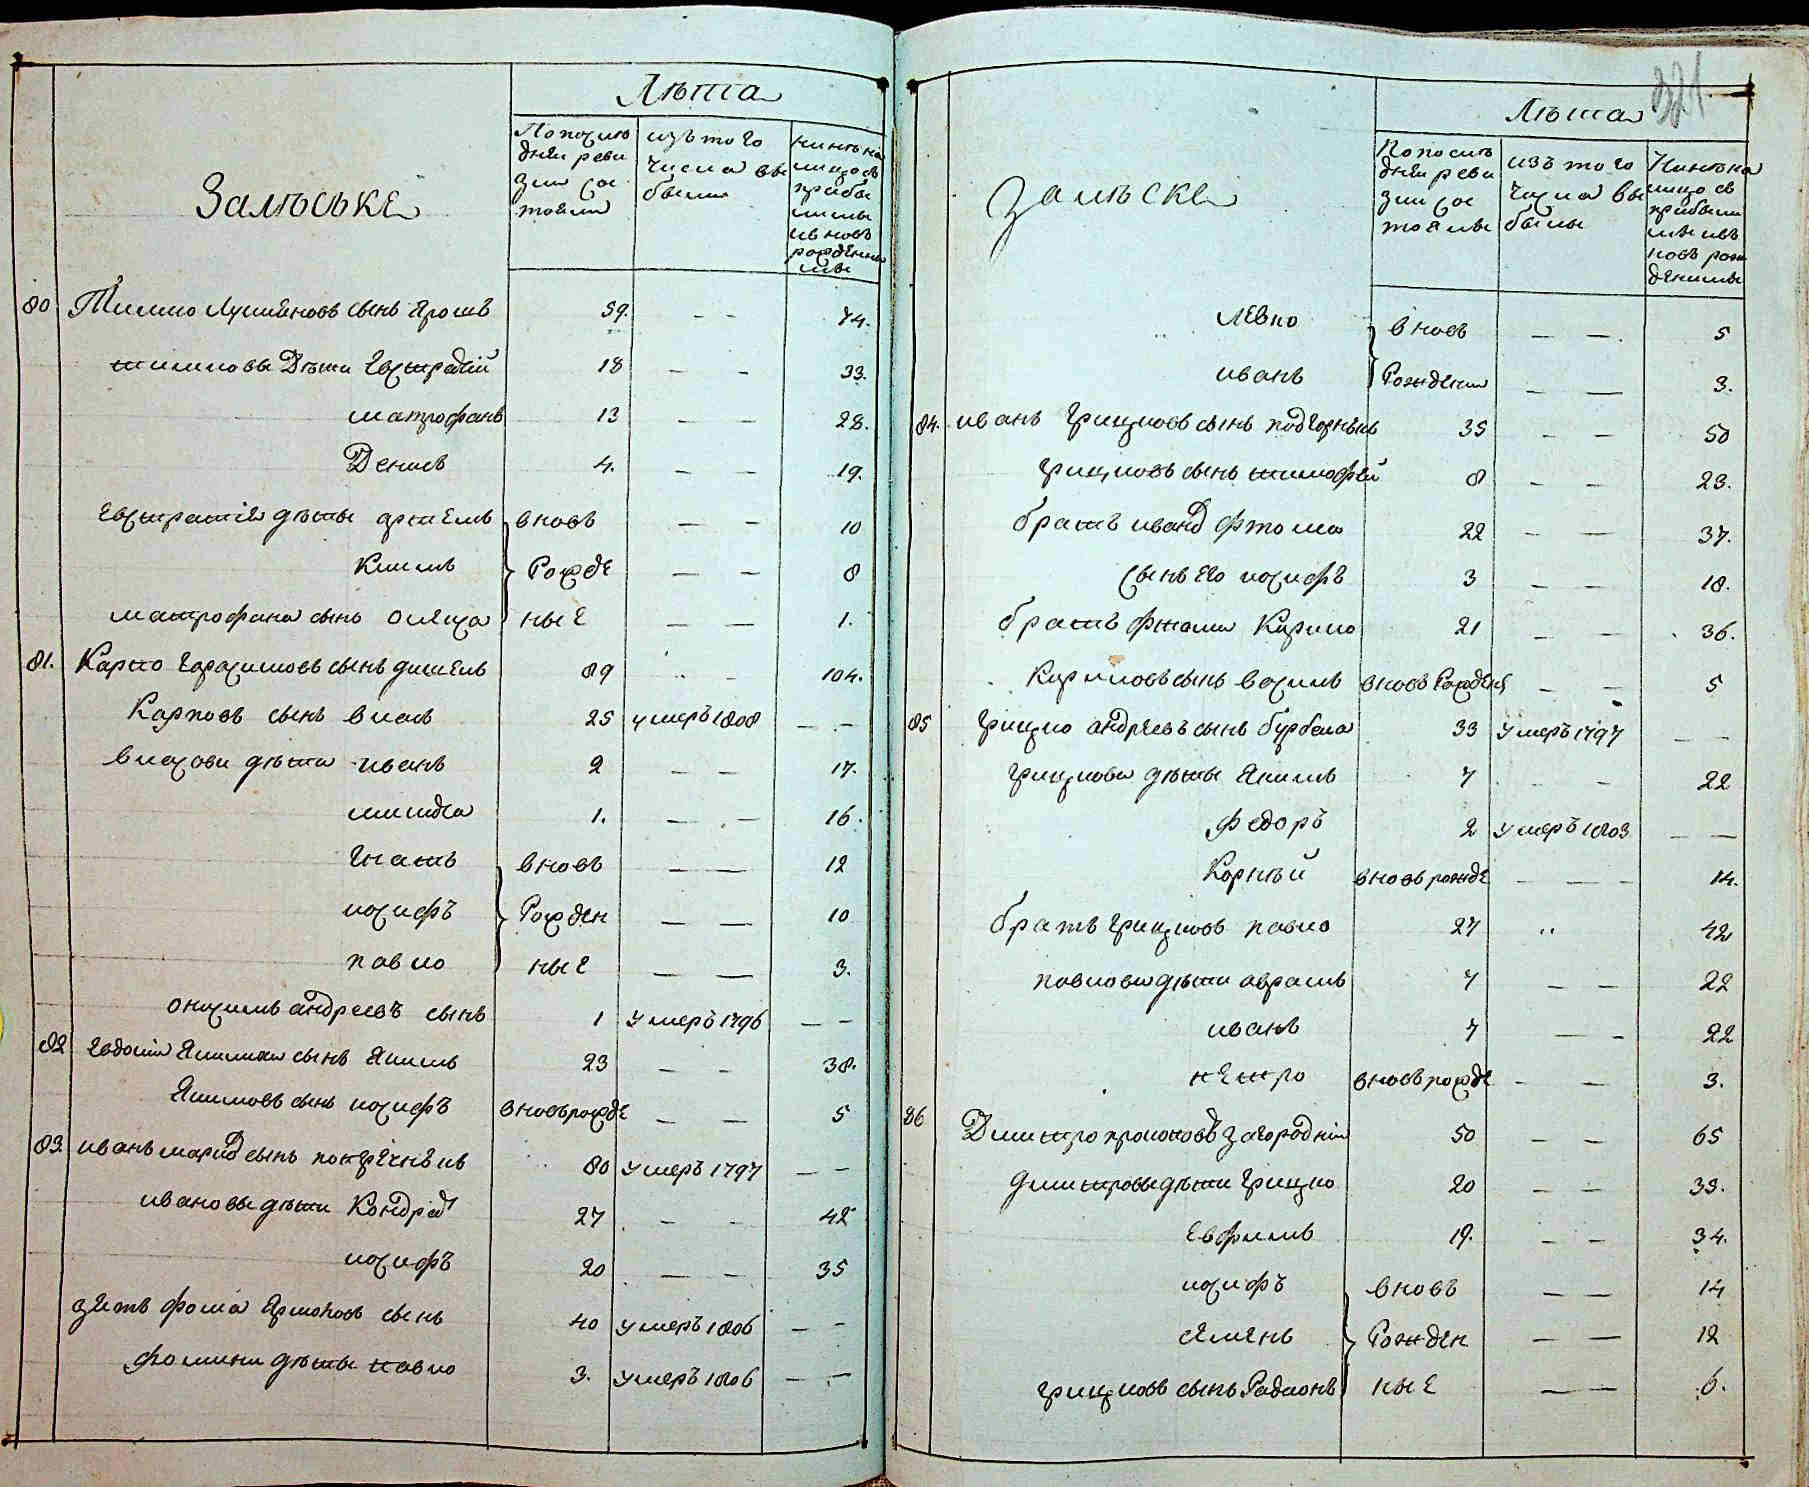 Лѣта
Залѣське
По послѣ
дней реви
зіи сос
тояли
изъ того
числа вы
были
Нинѣ на
лицо съ
прибы
лимы
и вновь
рожденны
ми
80 Тимко сынъ Ярошъ 59. — — 74.
тимковы Дѣти Евстратій 18 — — 33.
митрофанъ 13 — — 28.
Денисъ 4. — — 19.
Евстратія дѣти артемъ вновь — — 10
Климъ Рожде — — 8
митрофана сынъ ные — — 1.
81. Карпо Гарасимовъ сынъ 89 — — 104.
Карповъ сынъ власъ 25 умеръ 1808 — —
власови дѣти иванъ 2 — — 17.
1. — — 16.
Гнатъ вновь — — 12
иосифъ Рожден — — 10
павло ные — — 3.
онисимъ андреевъ сынъ 1 умеръ 1796 — —
82 сынъ Якимъ 23 — — 38.
Якимовъ сынъ иосифъ вновь рожде — — 5
83. иванъ сынъ 80 умеръ 1797 — —
ивановы дѣти Кондрат 27 — — 42
иосифъ 20 — — 35
зять фома сынъ 40 умеръ 1806 — —
фомини дѣты павло 3. умеръ 1806 — —
321
Лѣта
Залѣске
По послѣ
дней реви
зіи сос
тоялы
изъ того
числа вы
былы
Нинѣ на
лицо съ
прибыли
ми и въ
новь рож
денимы
левко вновь — — 5
иванъ Рожденни — — 3.
84. иванъ Грицковъ сынъ подгорный 35 — — 50
грицковъ сынъ тимофей 8 — — 23.
братъ иванд фтома 22 — — 37.
сынъ его иосифъ 3 — — 18.
братъ фтоми Кирило 21 — — 36.
Кириловъ сынъ василь вновь Рожден — — 5
85 грицко андреевъ сынъ бурбела 33 умеръ 1797 — —
грицкови дѣты Якимъ 7 — — 22
федоръ 2 умеръ 1803 — —
Корнѣй вновь рожде — — — 14.
братъ грицковъ павло 27 " 42
павлови дѣти аврамъ 7 — — 22
иванъ 7 — — 22
петро вновь рожде — — 3.
86 Дмитро прокоповъ загородній 50 — — 65
дмитровы дѣти Грицко 20 — — 33.
Евфимъ 19. — — 34.
иосифъ вновь — — 14
семенъ Рожден — — 12
грицковъ сынъ Радионъ ные — — 6.